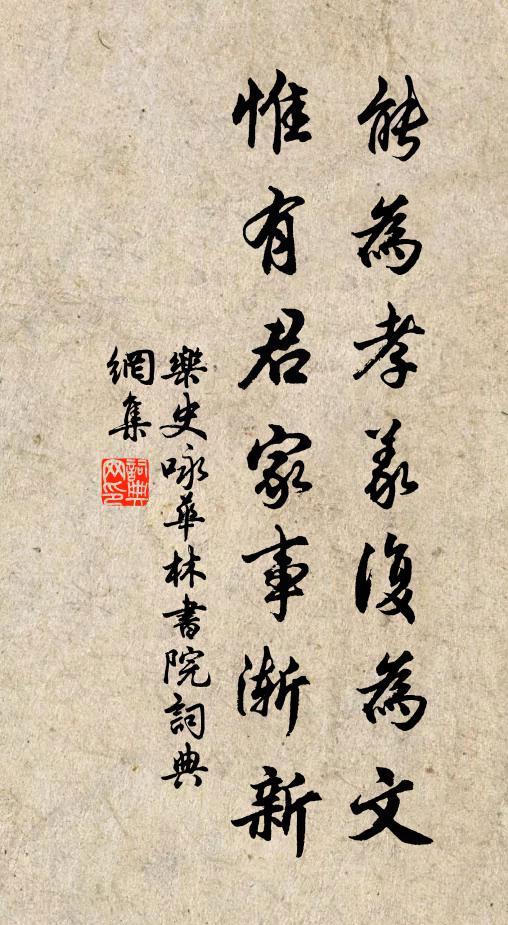 能為孝義復為文
惟有君家事漸新
樂史咏華林書院詞典
網集
詞典
网印